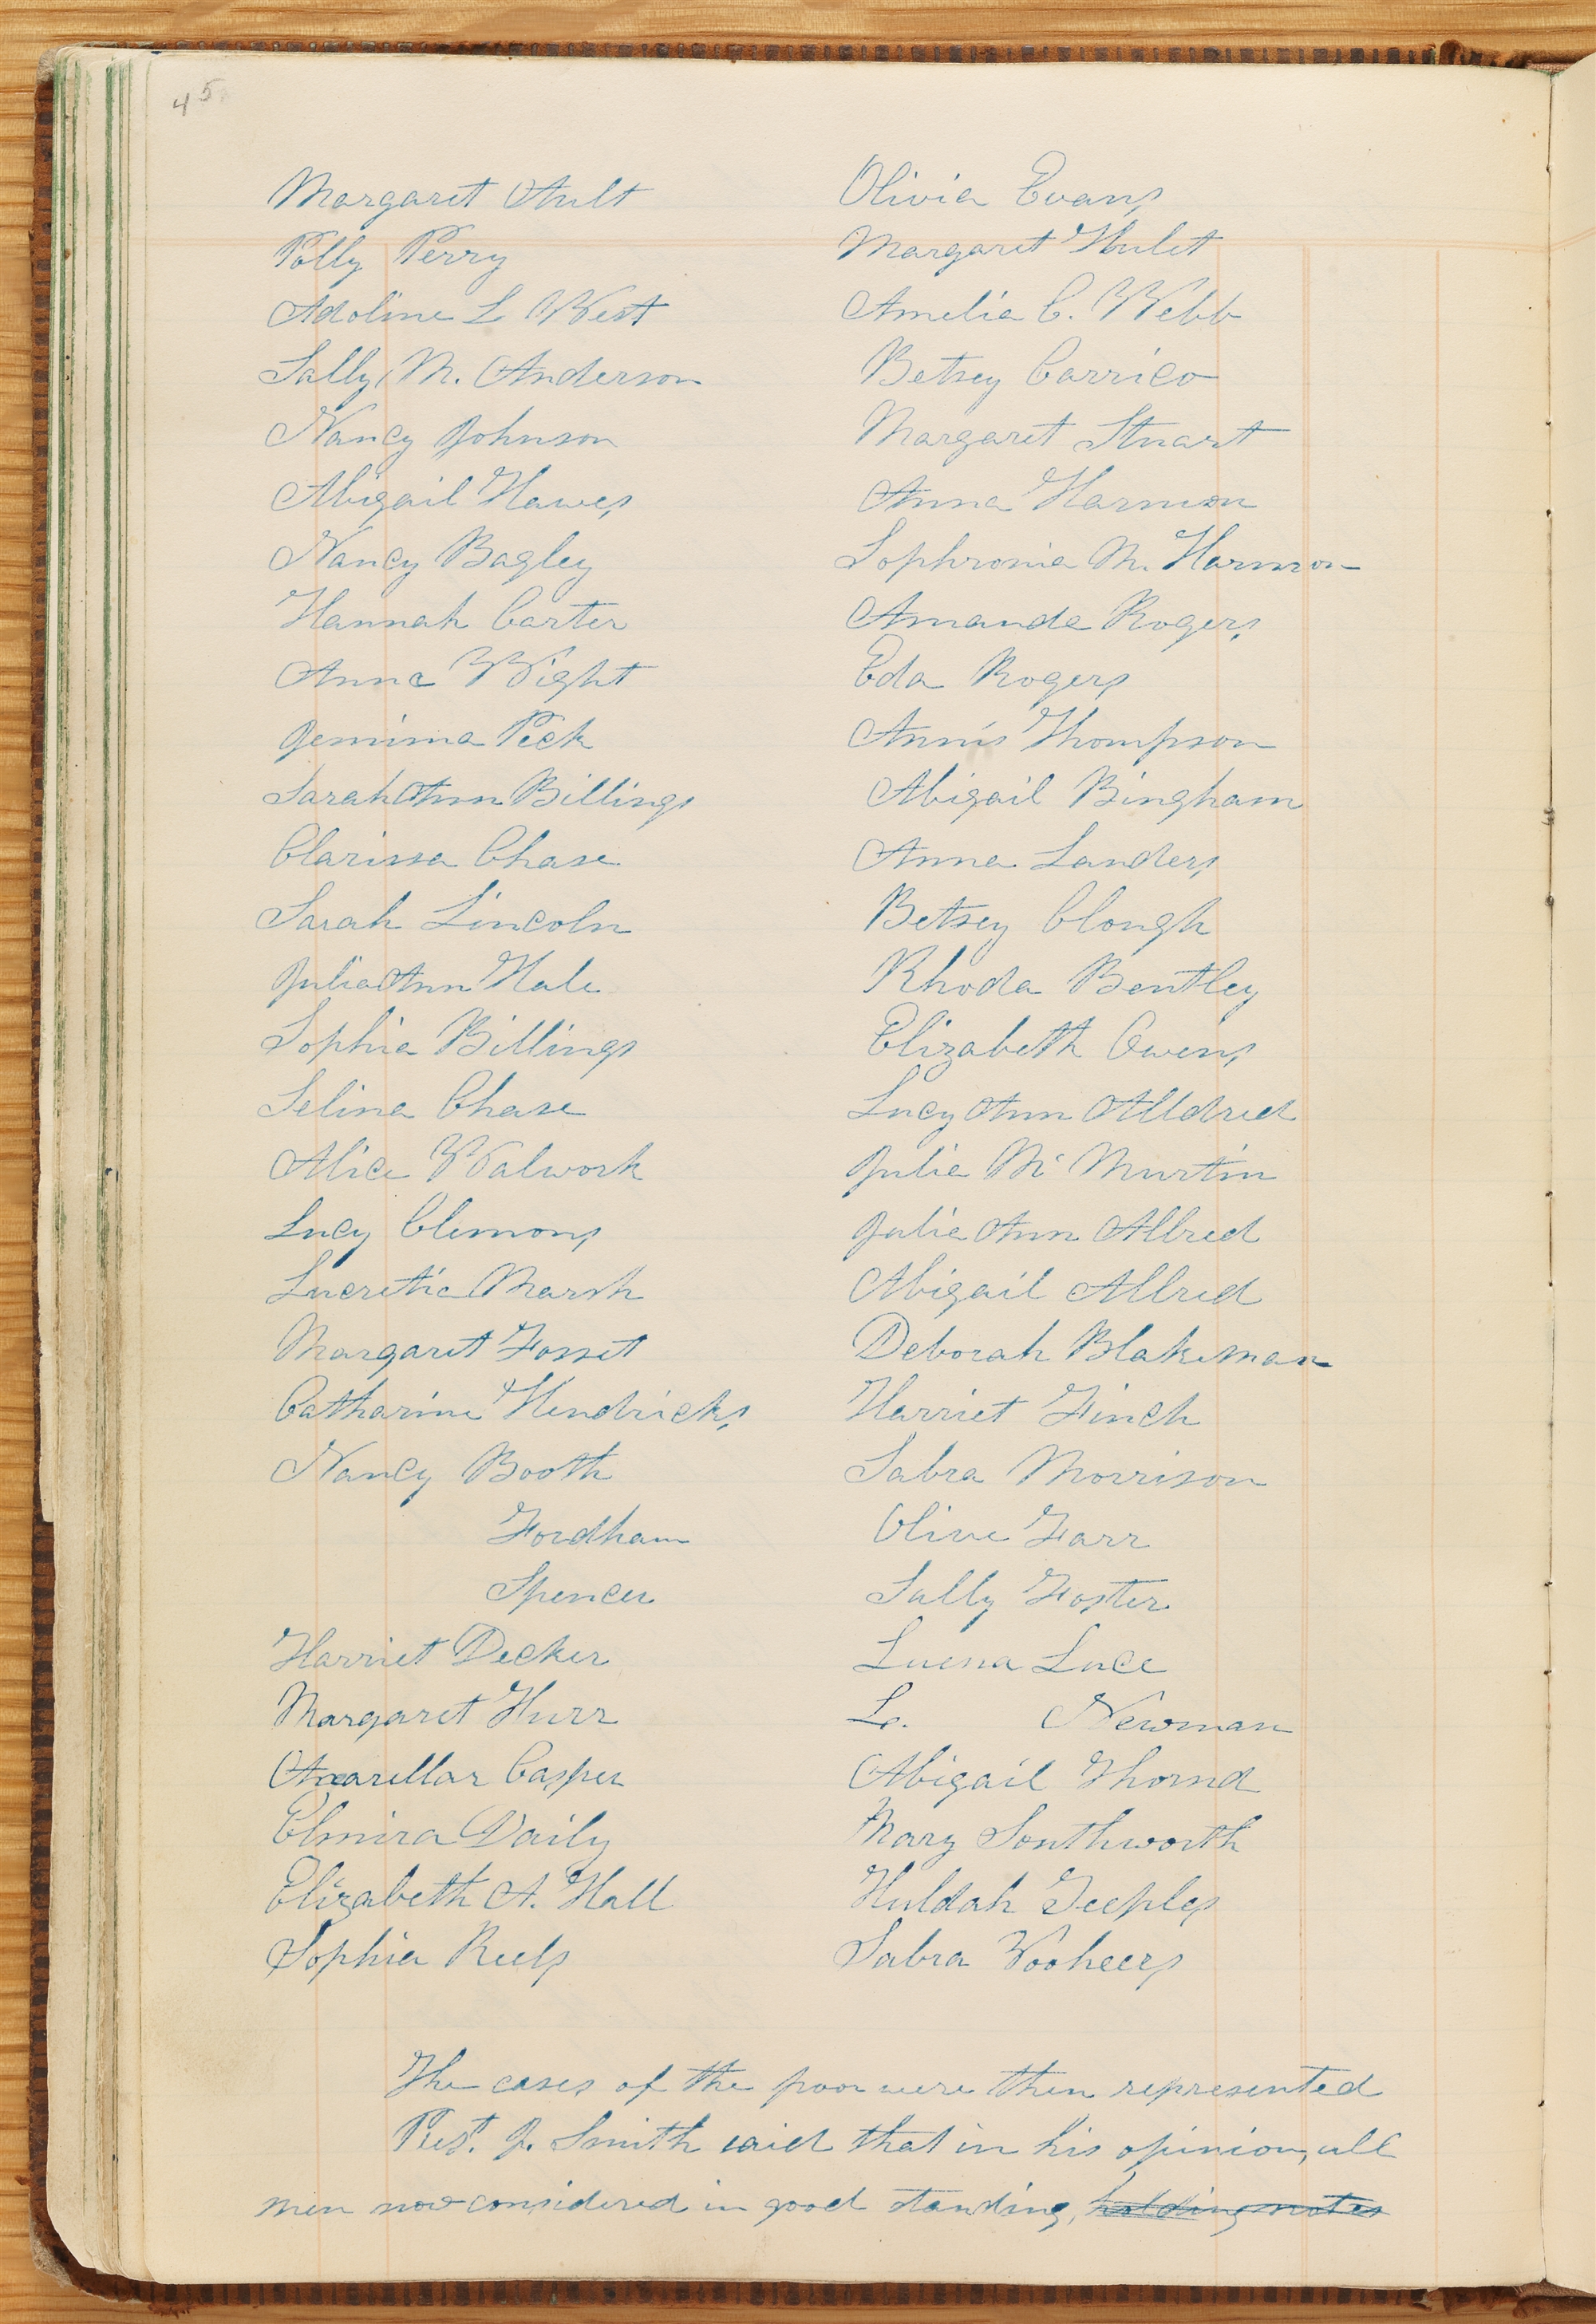 45
Margaret Ault
Polly Perry
Adoline L West
Sally M. Anderson
Nancy Johnson
Abigail Hawes
Nancy Bagley
Hannah Carter
Anna Wight
Jemima Peck
Sarah Ann Billings
Clarissa Chase
Sarah Lincoln
Julia Ann Hale
Sophia Billings
Selina Chase
Alice Walwork
Lucy Clemons
Lucretia Marsh
Margaret Fosset
Catharine Hendricks
Nancy Booth
Fordham
Spencer
Harriet Decker
Margaret Hurr
Casper
Elmira Daily
Elizabeth A. Hall
Sophia Reels
Olivia Evans
Margaret Hulet
Amelia C. Webb
Betsey Carrico
Margaret Stuart
Anna Harmon
Sophronia M. Harmon
Amanda Rogers
Eda Rogers
Annis Thompson
Abigail Bingham
Anna Landers
Betsey Clough
Rhoda Bentley
Elizabeth Owens
Lucy Ann Alldred
Julia Mc Murtin
Julia Ann Allred
Abigail Allred
Deborah Blakeman
Harriet Finch
Sabra Morrison
Olive Farr
Sally Foster
Luena Luce
L. Newman
Abigail Thornd
Mary Southworth
Huldah Teeples
Sabra Vooheers
The cases of the poor were then represented
Prest. J. Smith said that in his opinion, all
men now considered in good standing, holding notes